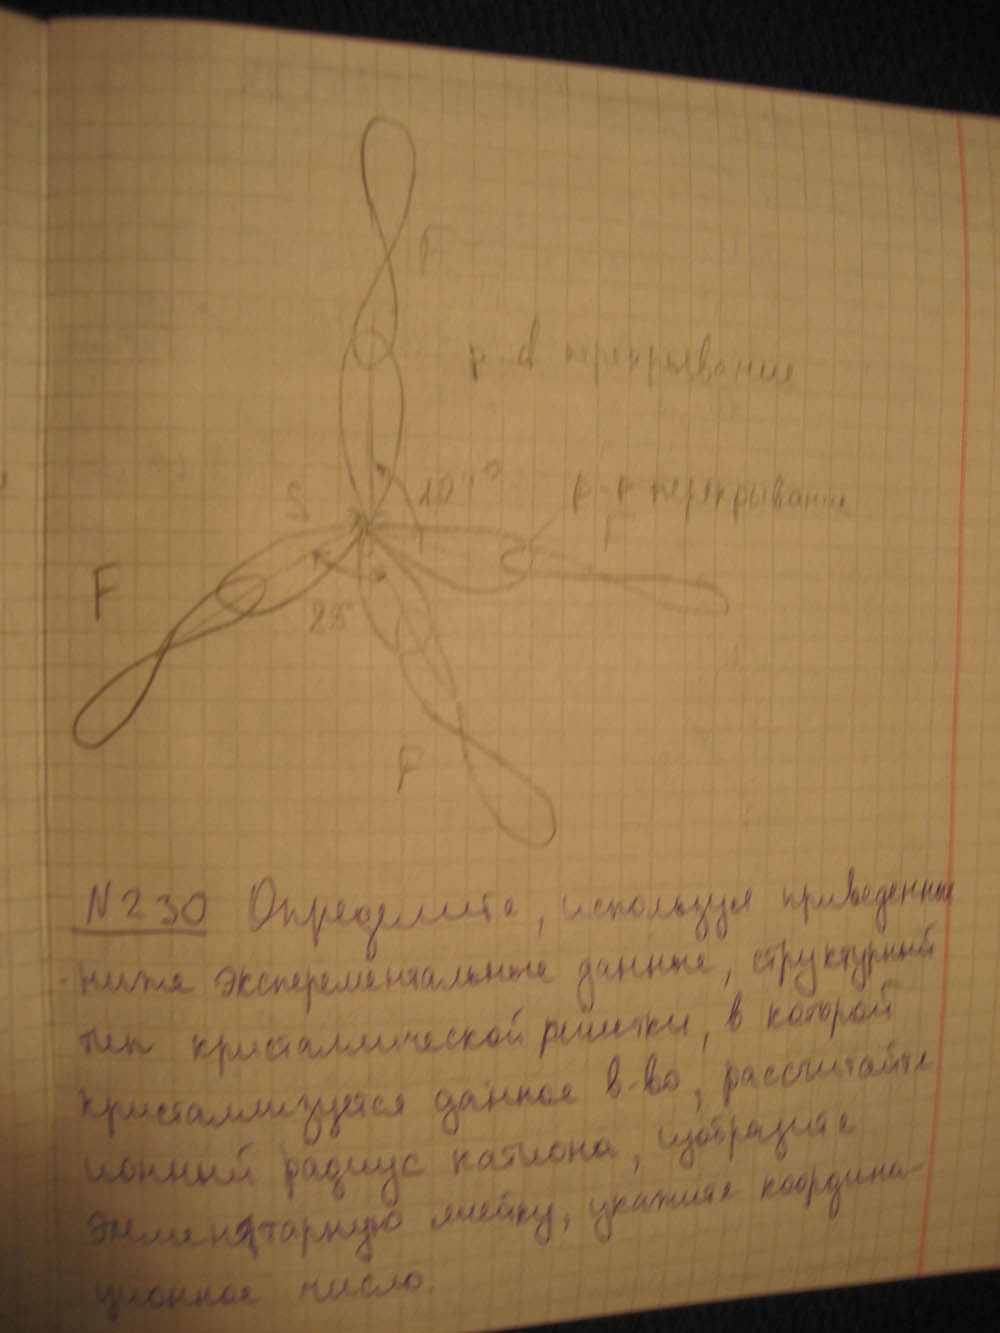 F
p-d перекрывание
104°
S
p-p перекрывание
F
F
85
F
N230 Определите, используя приведенные
ниже эксперементальные данные, структурный
тип кристаллической решетки, в которой
кристаллизуется данное в-во, рассчитайте
ионный радиус катиона, изобразите
элементарную ячейку, укажите координа-
ционное число.